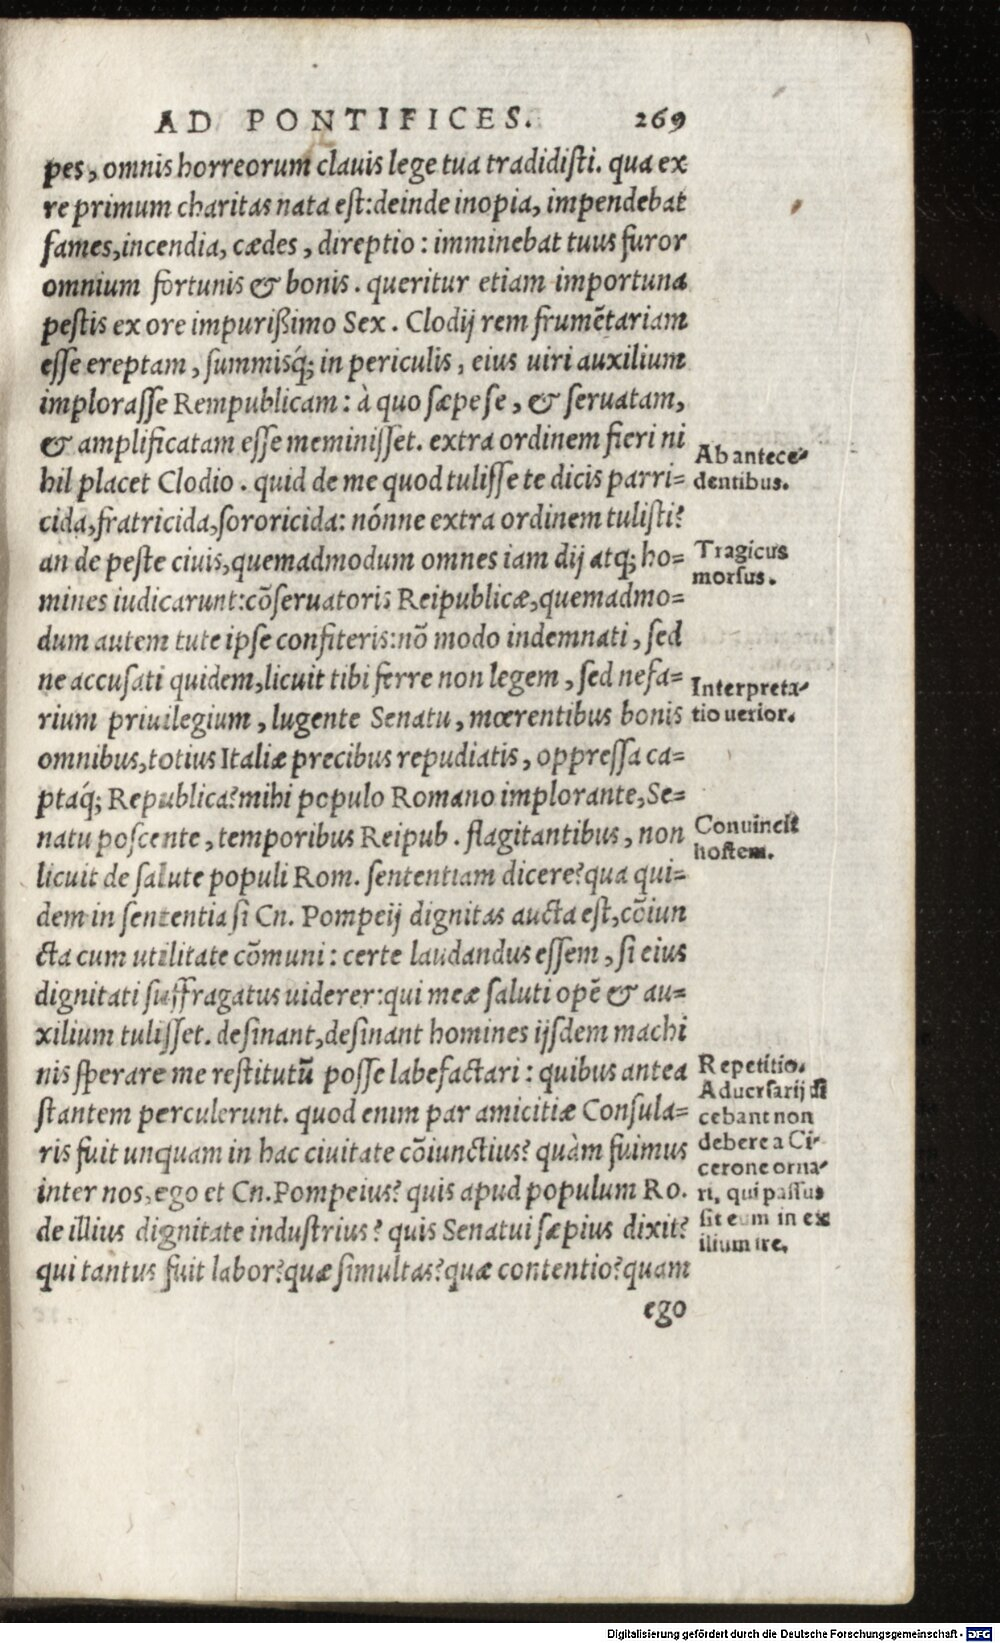 AD PONTIFICES. 269
pes, omnis horreorum clauis lege tua tradidisti. qua ex
re primum charitas nata est: deinde inopia, impendebat
fames, incendia, cædes, direptio: imminebat tuus furor
omnium fortunis & bonis. queritur etiam importuna
pestis ex ore impurißimo Sex. Clodij rem frumētariam
esse ereptam, summisq́; in periculis, eius uiri auxilium
implorasse Rempublicam: à quo sæpe se, & seruatam,
& amplificatam esse meminisset. extra ordinem fieri ni
hil placet Clodio. quid de me quod tulisse te dicis parri=
cida, fratricida, sororicida: nónne extra ordinem tulisti?
an de peste ciuis, quemadmodum omnes iam dij atq; ho=
mines iudicarunt: cōseruatoris Reipublicæ, quemadmo=
dum autem tute ipse confiteris: nō modo indemnati, sed
ne accusati quidem, licuit tibi ferre non legem, sed nefa=
rium priuilegium, lugente Senatu, mœrentibus bonis
omnibus, totius Italiæ precibus repudiatis, oppressa ca=
ptaq́; Republica? mihi populo Romano implorante, Se=
natu poscente, temporibus Reipub. flagitantibus, non
licuit de salute populi Rom. sententiam dicere? qua qui=
dem in sententia si Cn. Pompeij dignitas aucta est, cōiun
cta cum utilitate cōmuni: certe laudandus essem, si eius
dignitati suffragatus uiderer: qui meæ saluti opē & au=
xilium tulisset. desinant, desinant homines ijsdem machi
nis sperare me restitutū posse labefactari: quibus antea
stantem perculerunt. quod enim par amicitiæ Consula=
ris fuit unquam in hac ciuitate cōiunctius? quàm fuimus
inter nos, ego et Cn. Pompeius? quis apud populum Ro.
de illius dignitate industrius? quis Senatui sæpius dixit?
qui tantus fuit labor? quæ simultas? quæ contentio? quam
ego
Ab antece-
dentibus.
Tragicus
morsus.
Interpreta-
tio uerior.
Conuincit
hostem.
Repetitio.
Aduersarij di
cebant non
debere a Ci-
cerone orna-
ri, qui passus
sit eum in ex
ilium ire.
Digitalisierung gefördert durch die Deutsche Forschungsgemeinschaft - DFG